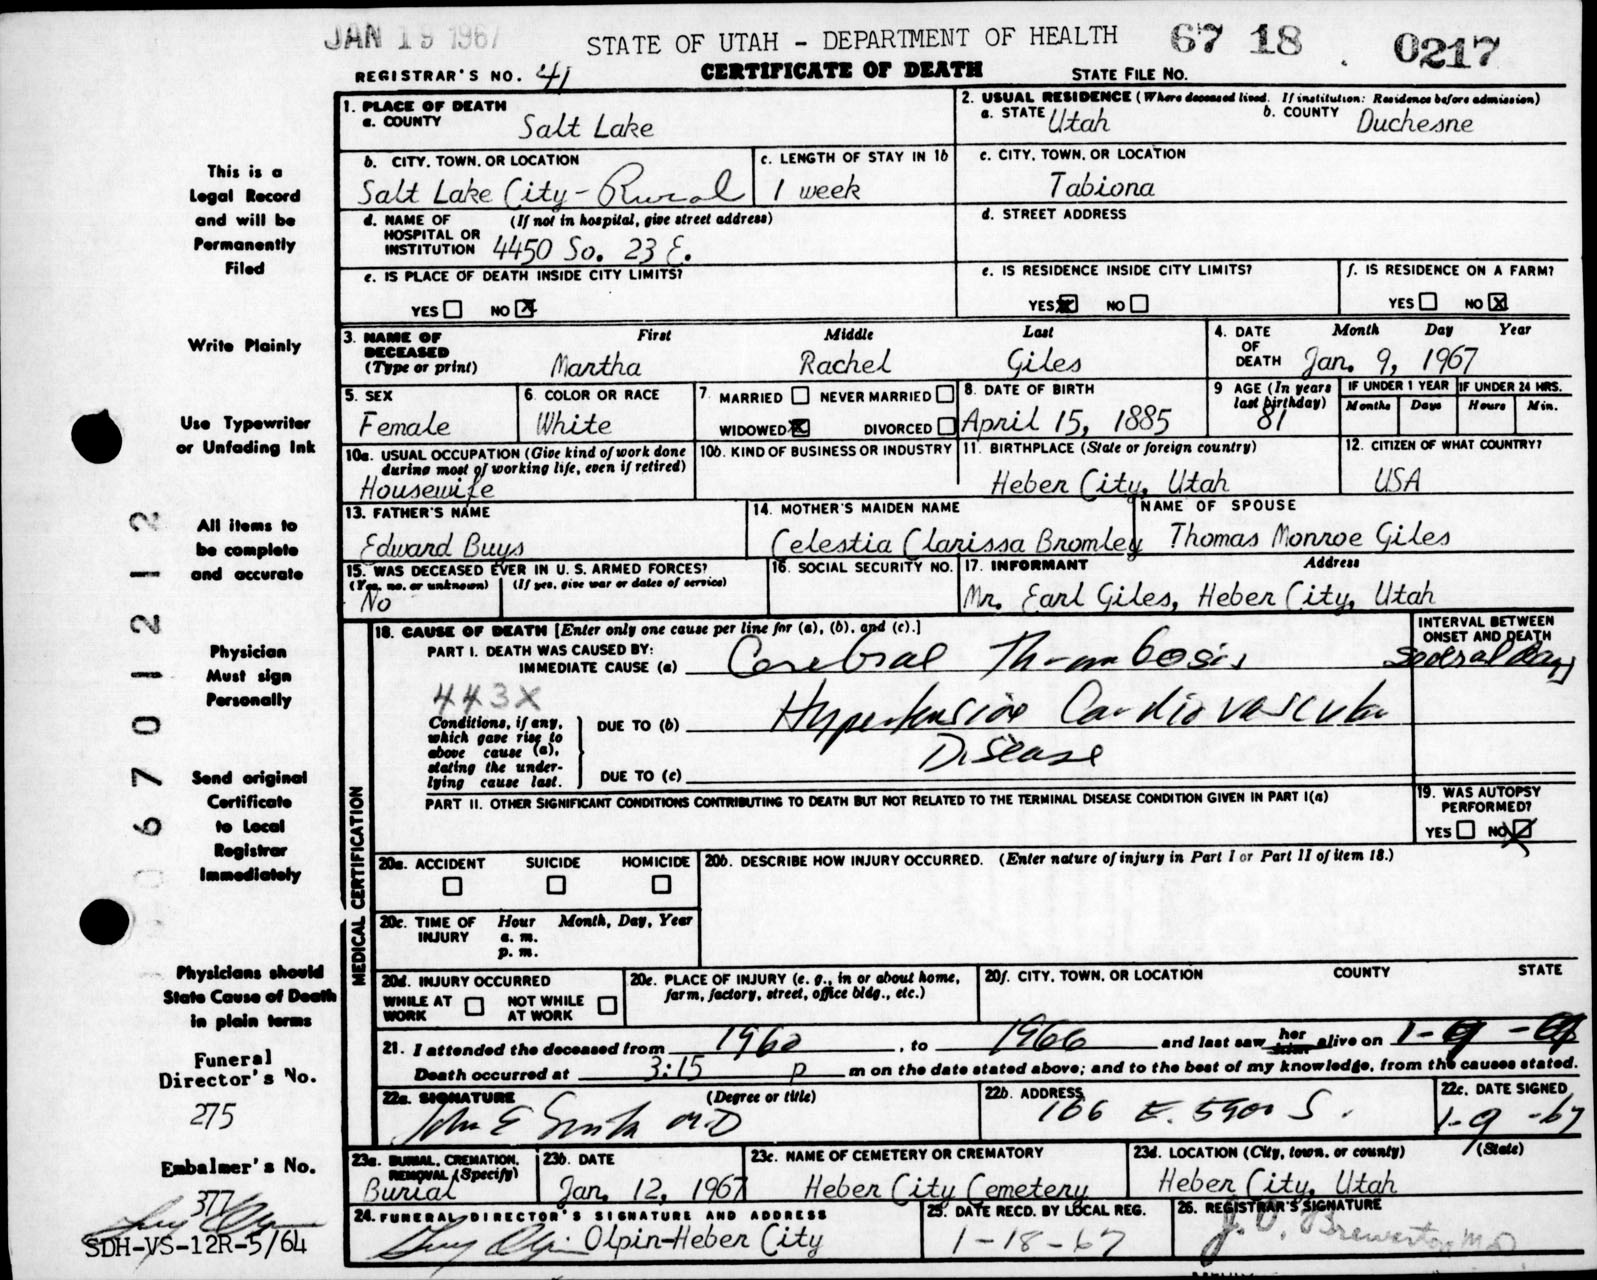 JAN 19 1967
STATE OF UTAH - DEPARTMENT OF HEALTH 67 18 0217
REGISTRAR'S NO. 41 CERTIFICATE OF DEATH STATE FILE NO.
1. PLACE OF DEATH
a. COUNTY Salt Lake
2. USUAL RESIDENCE (Where deceased lived. If institution: Residence before admission)
a. STATE Utah b. COUNTY Duchesne
b. CITY, TOWN, OR LOCATION Salt Lake City-Rural
c. LENGTH OF STAY IN 1b 1 week
c. CITY, TOWN, OR LOCATION Tabiona
d. NAME OF HOSPITAL OR INSTITUTION (If not in hospital, give street address) 4450 So. 23 E.
d. STREET ADDRESS
e. IS PLACE OF DEATH INSIDE CITY LIMITS?
YES NO X
e. IS RESIDENCE INSIDE CITY LIMITS?
YES X NO
f. IS RESIDENCE ON A FARM?
YES NO X
3. NAME OF DECEASED (Type or print) First Middle Last
Martha Rachel Giles
4. DATE OF DEATH Month Day Year
Jan. 9, 1967
5. SEX Female
6. COLOR OR RACE White
7. MARRIED NEVER MARRIED
WIDOWED X DIVORCED
8. DATE OF BIRTH April 15, 1885
9 AGE (In years last birthday) 81
IF UNDER 1 YEAR Months Days
IF UNDER 24 HRS. Hours Min.
10a. USUAL OCCUPATION (Give kind of work done during most of working life, even if retired)
Housewife
10b. KIND OF BUSINESS OR INDUSTRY
11. BIRTHPLACE (State or foreign country)
Heber City, Utah
12. CITIZEN OF WHAT COUNTRY?
USA
13. FATHER'S NAME
Edward Buys
14. MOTHER'S MAIDEN NAME
Celestia Clarissa Bromley
NAME OF SPOUSE
Thomas Monroe Giles
15. WAS DECEASED EVER IN U. S. ARMED FORCES?
(Yes, no, or unknown) (If yes, give war or dates of service)
No
16. SOCIAL SECURITY NO.
17. INFORMANT Address
Mr. Earl Giles, Heber City, Utah
MEDICAL CERTIFICATION
18. CAUSE OF DEATH [Enter only one cause per line for (a), (b), and (c).]
INTERVAL BETWEEN ONSET AND DEATH
PART I. DEATH WAS CAUSED BY:
IMMEDIATE CAUSE (a) Cerebral Thrombosis Several days
443X
Conditions, if any, which gave rise to above cause (a), stating the underlying cause last.
DUE TO (b) Hypertensive Cardiovascular
Disease
DUE TO (c)
PART II. OTHER SIGNIFICANT CONDITIONS CONTRIBUTING TO DEATH BUT NOT RELATED TO THE TERMINAL DISEASE CONDITION GIVEN IN PART I(a)
19. WAS AUTOPSY PERFORMED?
YES NO X
20a. ACCIDENT SUICIDE HOMICIDE
20b. DESCRIBE HOW INJURY OCCURRED. (Enter nature of injury in Part I or Part II of item 18.)
20c. TIME OF INJURY Hour Month, Day, Year
a. m.
p. m.
20d. INJURY OCCURRED
WHILE AT WORK NOT WHILE AT WORK
20e. PLACE OF INJURY (e. g., in or about home, farm, factory, street, office bldg., etc.)
20f. CITY, TOWN, OR LOCATION COUNTY STATE
21. I attended the deceased from 1960, to 1966 and last saw her him alive on 1-9-
Death occurred at 3:15 p m on the date stated above; and to the best of my knowledge, from the causes stated.
22a. SIGNATURE (Degree or title)
John E Smith M.D
22b. ADDRESS
166 E. 5900 S.
22c. DATE SIGNED
1-9-67
23a. BURIAL, CREMATION, REMOVAL (Specify)
Burial
23b. DATE
Jan. 12, 1967
23c. NAME OF CEMETERY OR CREMATORY
Heber City Cemetery
23d. LOCATION (City, town, or county) (State)
Heber City, Utah
24. FUNERAL DIRECTOR'S SIGNATURE AND ADDRESS
Olpin-Heber City
25. DATE RECD. BY LOCAL REG.
1-18-67
26. REGISTRAR'S SIGNATURE
J. V. Brewerton M.D
This is a
Legal Record
and will be
Permanently
Filed
Write Plainly
Use Typewriter
or Unfading Ink
All items to
be complete
and accurate
Physician
Must sign
Personally
Send original
Certificate
to Local
Registrar
Immediately
Physicians should
State Cause of Death
in plain terms
Funeral
Director's No.
275
Embalmer's No.
377
SDH-VS-12R-5/64
067012212